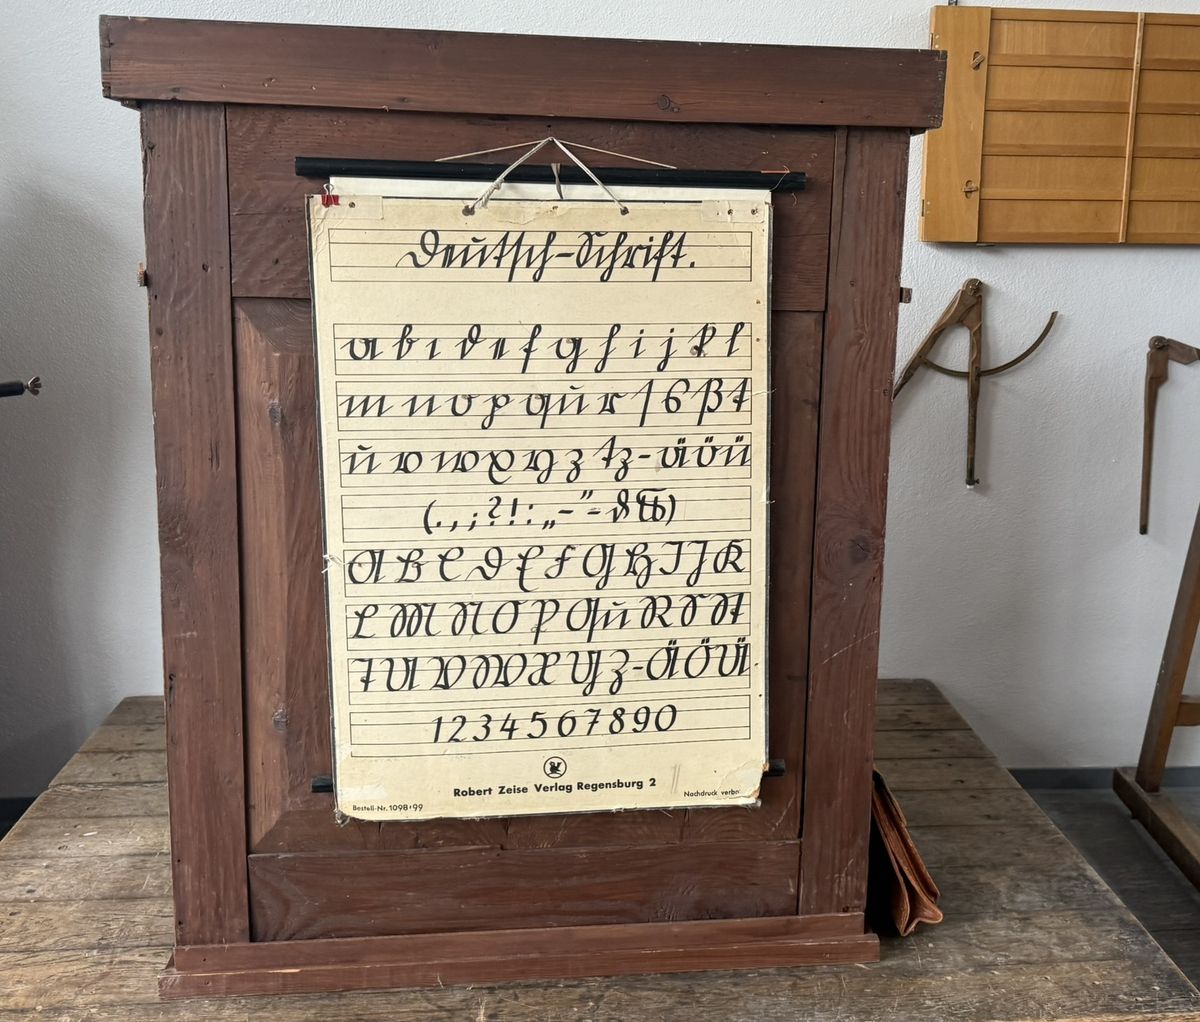 Deutsch-Schrift.
a b c d e f g h i j k l
m n o p qu r ſ s ß t
u v w x y z tz - ä ö ü
(. , ; ? ! : „ - " -
A B C D E F G H I J K
L M N O P Qu R S St
T U V W X Y Z - Ä Ö Ü
1 2 3 4 5 6 7 8 9 0
Robert Zeise Verlag Regensburg 2
Bestell-Nr. 1098+99
Nachdruck verbo